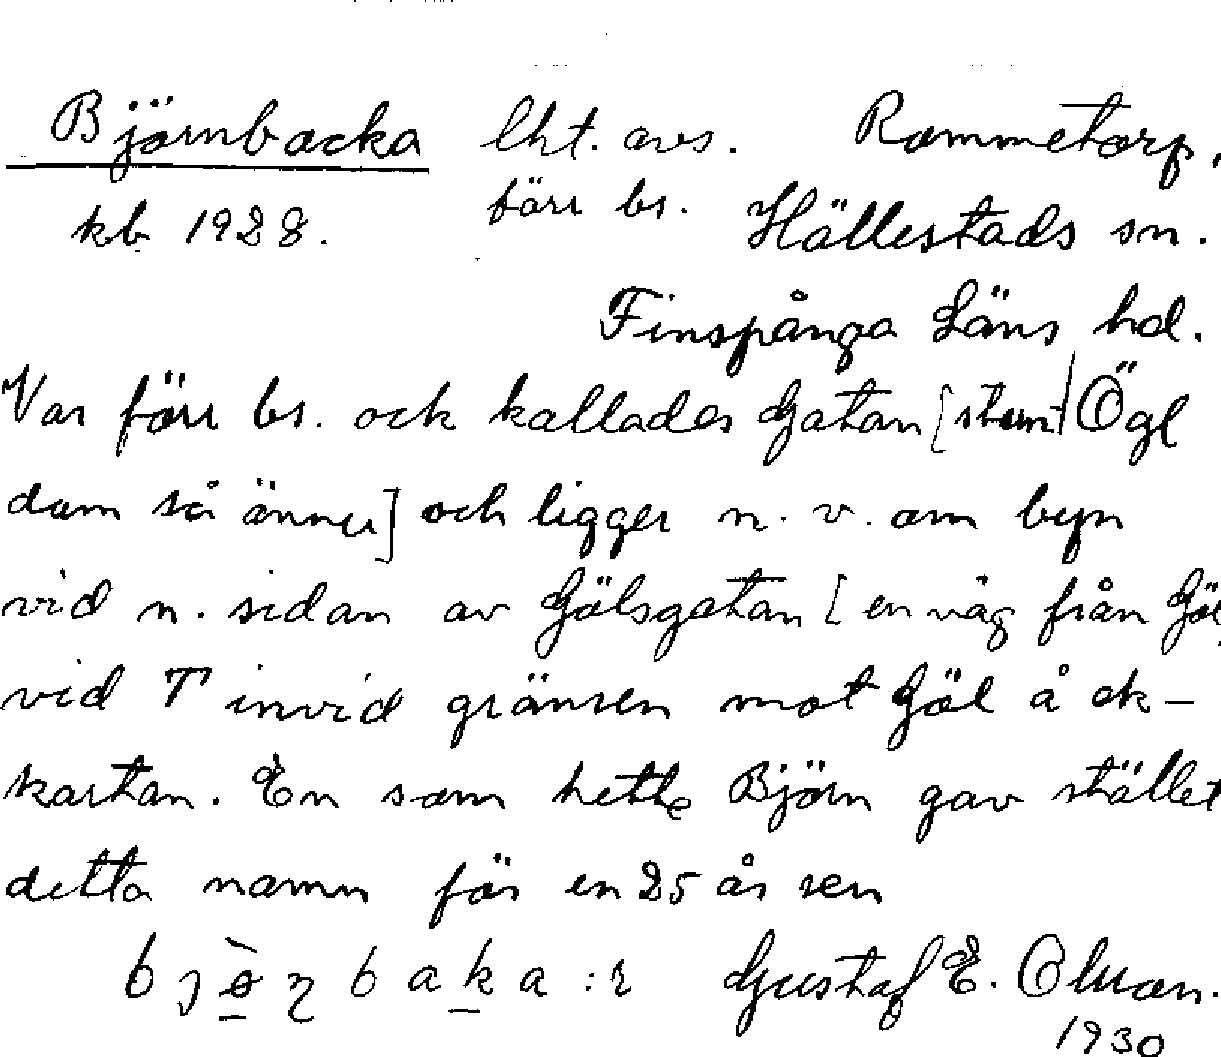 Björnbacka lht. avs. Rommetorp,
kb 1928. förr bs. Hällestads sn.
Finspånga Läns hd.
Var förr bs. och kallades Gatan [stun Ögl
dom så ännu] och ligger n. v. om byn
vid n. sidan av Gölsgatan [en väg från Göl
vid T invid gränsen mot Göl å ek-
kartan. En som hette Björn gav stället
detta namn för en 25 år sen
Gustaf E. Olson.
1930